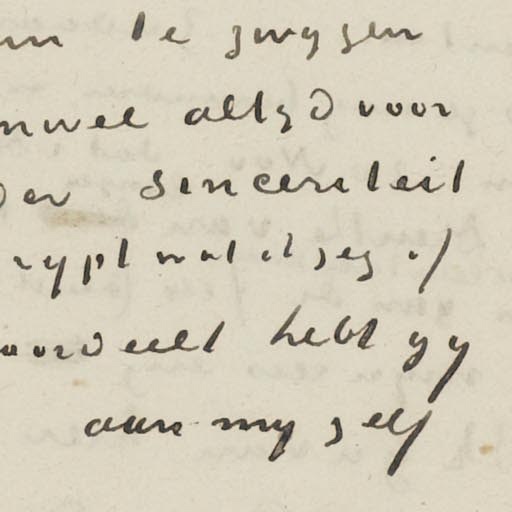 te zwygen
altyd voor
der sinceriteit
rypt wat ik zeg of
oordeelt hebt gy
aan my self